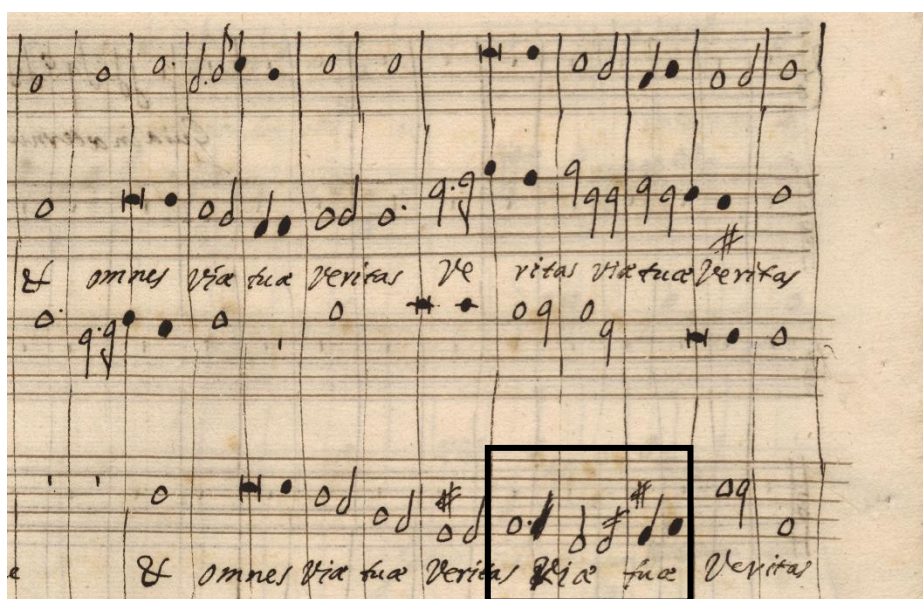 & omnes viæ tuæ veritas ve ritas viæ tuæ veritas
& omnes viæ tuæ veritas viæ tuæ veritas